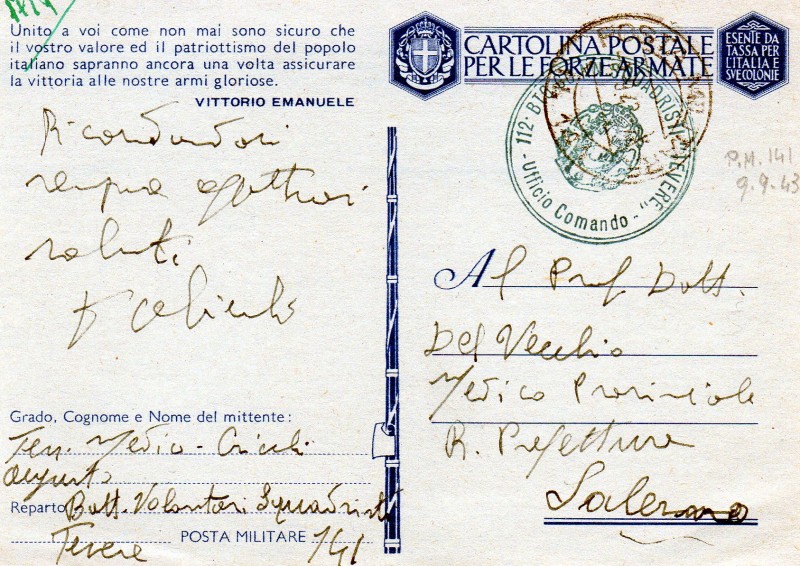 Unito a voi come non mai sono sicuro che
il vostro valore ed il patriottismo del popolo
italiano sapranno ancora una volta assicurare
la vittoria alle nostre armi gloriose.
VITTORIO EMANUELE
CARTOLINA POSTALE
PER LE FORZE ARMATE
ESENTE DA
TASSA PER
L'ITALIA E
SUE COLONIE
112° BTG. SQUADRISTI "TEVERE"
- Ufficio Comando -
P.M. 141
9.9.43
Ricordandosi
sempre
saluti
Al Prof. Dott.
Del Vecchio
Medico Provinciale
R. Prefettura
Salerno
Grado, Cognome e Nome del mittente:
Ten. Medico -
Augusto
Reparto Batt. Volontari Squadristi
Tevere POSTA MILITARE 141